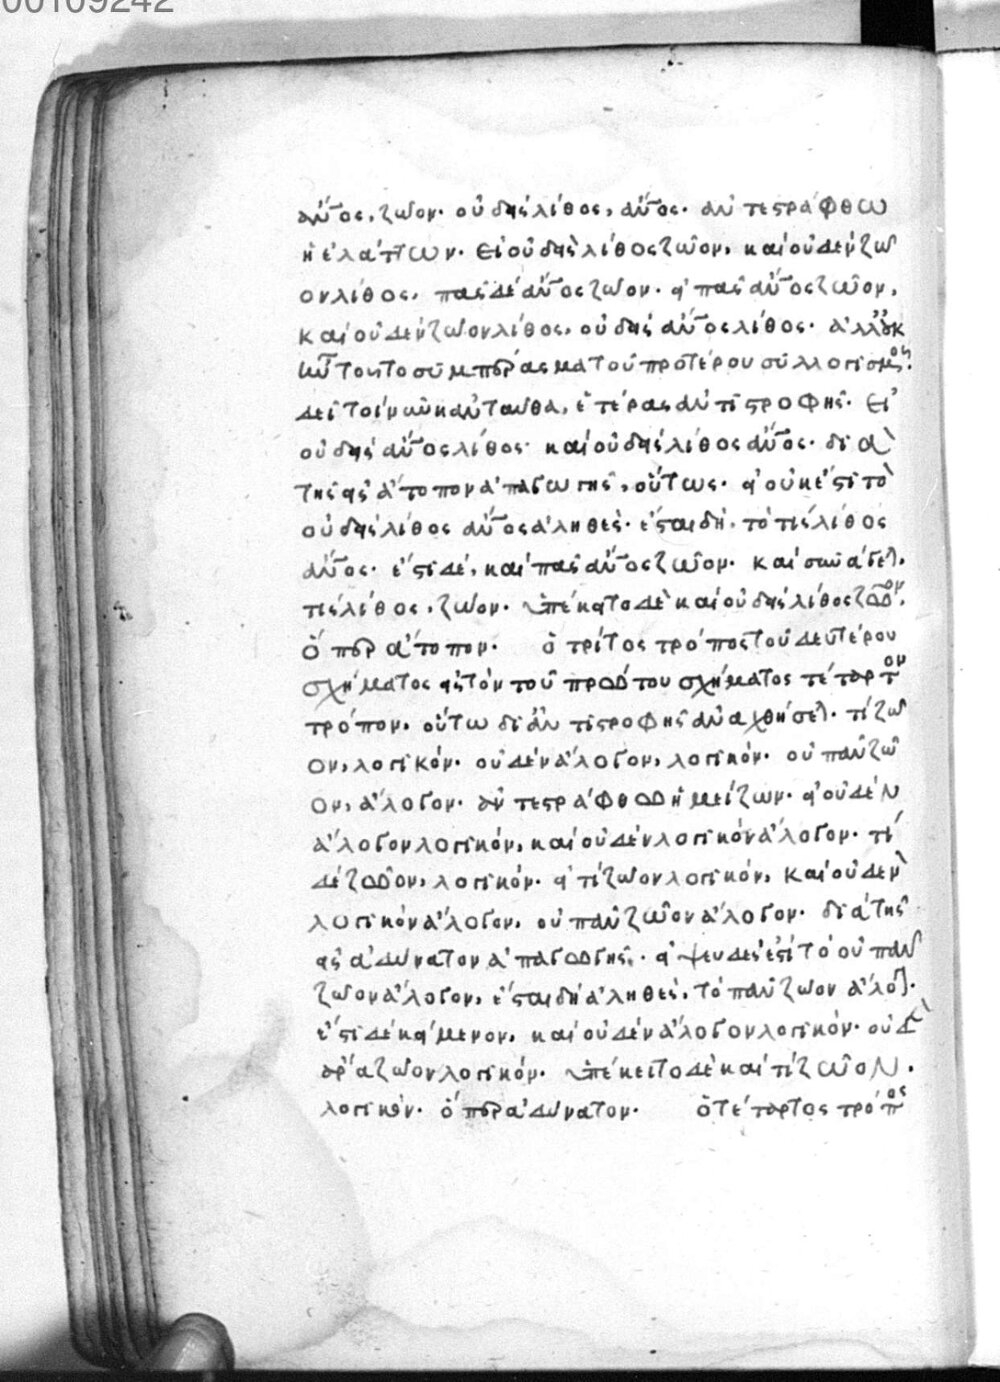 00109242
ἄν̅ος, ζῶον· οὐδεὶς λίθος, ἄν̅ος· ἀντεστράφθω
ἡ ἐλάττων. εἰ οὐδεὶς λίθος ζῶον, καὶ οὐδὲν ζῶ
ον λίθος, πᾶς δὲ ἄν̅ος ζῶον· εἰ πᾶς ἄν̅ος ζῶον,
καὶ οὐδὲν ζῶον λίθος, οὐδεὶς ἄν̅ος λίθος· ἀλλ' οὐκ
ἦν τοῦτο συμπέρασμα τοῦ προτέρου συλλογισμοῦ.
δεῖ τοίνυν κἀνταῦθα, ἑτέρας ἀντιστροφῆς· εἰ
οὐδεὶς ἄν̅ος λίθος· καὶ οὐδεὶς λίθος ἄν̅ος· διὰ
τῆς εἰς ἄτοπον ἀπαγωγῆς, οὕτως· εἰ οὐκ ἔστι τὸ
οὐδεὶς λίθος ἄν̅ος ἀληθές· ἔσται δὴ τὸ τὶς λίθος
ἄν̅ος· ἔστι δὲ, καὶ πᾶς ἄν̅ος ζῶον· καὶ συνάγε,
τὶς λίθος, ζῶον· ὑπέκειτο δὲ καὶ οὐδεὶς λίθος ζῶον,
ὅπερ ἄτοπον· ὁ τρίτος τρόπος τοῦ δευτέρου
σχήματος εἰς τὸν τοῦ πρώτου σχήματος τέταρτον
τρόπον, οὕτω δι' ἀντιστροφῆς ἀναχθήσε· τὶ ζῶ
ον, λογικόν· οὐδὲν ἄλογον, λογικόν· οὐ πᾶν ζῶ
ον, ἄλογον· ἀντεστράφθω ἡ μείζων· εἰ οὐδὲν
ἄλογον λογικόν, καὶ οὐδὲν λογικὸν ἄλογον· τὶ
δὲ ζῶον, λογικόν· εἰ τὶ ζῶον λογικόν, καὶ οὐδὲν
λογικὸν ἄλογον, οὐ πᾶν ζῶον ἄλογον· διὰ τῆς
εἰς ἀδύνατον ἀπαγωγῆς· εἰ ψευδὲς ἐστὶ τὸ οὐ πᾶν
ζῶον ἄλογον, ἔσται δὴ ἀληθὲς, τὸ πᾶν ζῶον ἄλογον·
ἔστι δὲ κείμενον, καὶ οὐδὲν ἄλογον λογικόν· οὐδὲν
ἄρα ζῶον λογικόν· ὑπέκειτο δὲ καὶ τὶ ζῶον,
λογικόν· ὅπερ ἀδύνατον· ὁ τέταρτος τρόπος